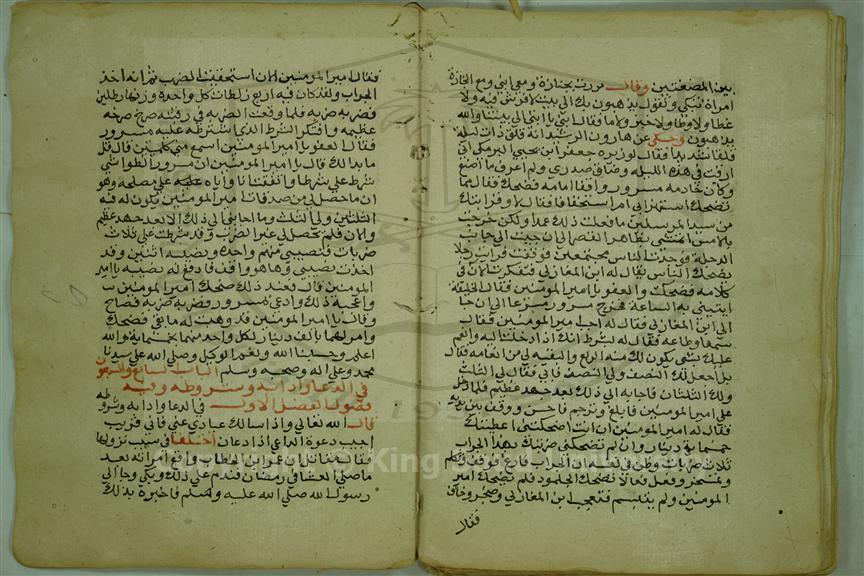 بين المصنعتين وقال مررت بجنازة ومعي ابني ومع الجنازة
امراة تبكي وتقول يذهبون بك الى بيت لا فرش فيه ولا
غطا ولا وطا ولا خبز ولا ما فقال يا ابتي الى بيتنا والله
يذهبون وحكي عن هارون الرشيد انه قلق ذات ليلة
قلقا شديدا فقال لوزيره جعفر ابن يحيي البرمكي اني
ارقت في هذه الليله وضاق صدري ولم اعرف ما اصنع
وكان خادمه مسرور واقفا امامه فضحك فقال مما
تضحك استهزا بي ام استخفافا فقال لا وقرابتك
من سيد المرسلين ما فعلت ذلك عمدا ولكن خرجت
بالامس اتمشي بظاهر القصر الى ان جيت الى جانب
الدجلة فوجدت الناس مجتمعين فوقفت فرايت رجلا
يضحك الناس يقال له ابن المغازلي فتفكرت الان في
كلامه فضحكت والعفو يا امير المومنين فقال الخليفة
ايتيني به الساعة فخرج مسرور مسرعا الى ان جا
الى ابن المغازلي فقال له اجب امير المومنين فقال
سمعا وطاعه فقال له بشرط انك اذا دخلت اليه وانعم
عليك بشي يكون لك منه الربع والبقيه لي من انعامه فقال
بل اجعل لك النصف ولي النصف فابي فقال لي الثلث
ولك الثلثان فاجابه الى ذلك بعد جهد عظيم فلما دخل
على امير المومنين فابلغ وترجم فاحسن ووقف بين يديه
فقال له امير المومنين ان انت اضحكتني اعطيتك
خمسماية دينار وان لم تضحكني ضربتك بهذا الجراب
ثلاث ضربات وظن في نفسه ان الجراب فارغ فوقف وتكلم
وتمسخر وفعل فعالا تضحك الجلمود فلم يضحك امير
المومنين ولم يتبسم فتعجب ابن المغازلي وضجر وخاف
فقال
فقال امير المومنين الان استحقيت الضرب ثم انه اخذ
الجراب ولفه وكان فيه اربع زلطات كل واحده وزنها رطلين
فضربه ضربه فلما وقعت الضربه في رقبته صرخ صرخه
عظيمه وافتكر الشرط الذي اشترطه عليه مسرور
فقال العفو يا امير المومنين اسمع مني كلمتين قال قل
ما بدا لك قال يا امير المومنين ان مسرور الطواشي
شرط علي شرطا واتفقت انا واياه عليه على مصلحه وهو
ان ما حصل لي من صدقات امير المومنين يكون له فيه
الثلثين ولي الثلث وما اجابني الى ذلك الا بعد جهد عظيم
والان فلم يحصل لي غير الضرب وقد شرطت علي ثلاث
ضربات فنصيبي منهم واحده ونصيبه اثنين وقد
اخذت نصيبي وها هو واقف فادفع له نصيبه يا امير
المومنين قال فعند ذلك ضحك امير المومنين
واعجبه ذلك وادعى بمسرور فضربه ضربه فصاح
وقال يا امير المومنين قد وهبت له ما بقي فضحك
وامر لهما بالف دينار لكل واحد منهما خمسماية والله
اعلم وحسبنا الله ونعم الوكيل وصلى الله على سيدنا
محمد وعلى اله وصحبه وسلم الباب السابع والسبعون
في الدعا وادابه وشروطه وفيه
فصول الفصل الاول في الدعا وادابه وشروطه
قال الله تعالى واذا سالك عبادي عني فاني قريب
اجيب دعوة الداعي اذا دعان اختلفوا في سبب نزولها
فقال مقاتل ان عمر ابن الخطاب واقع امراته بعد
ما صلى العشا في رمضان فندم على ذلك وبكي وجا الى
رسول الله صلى الله عليه وسلم فاخبره بذلك